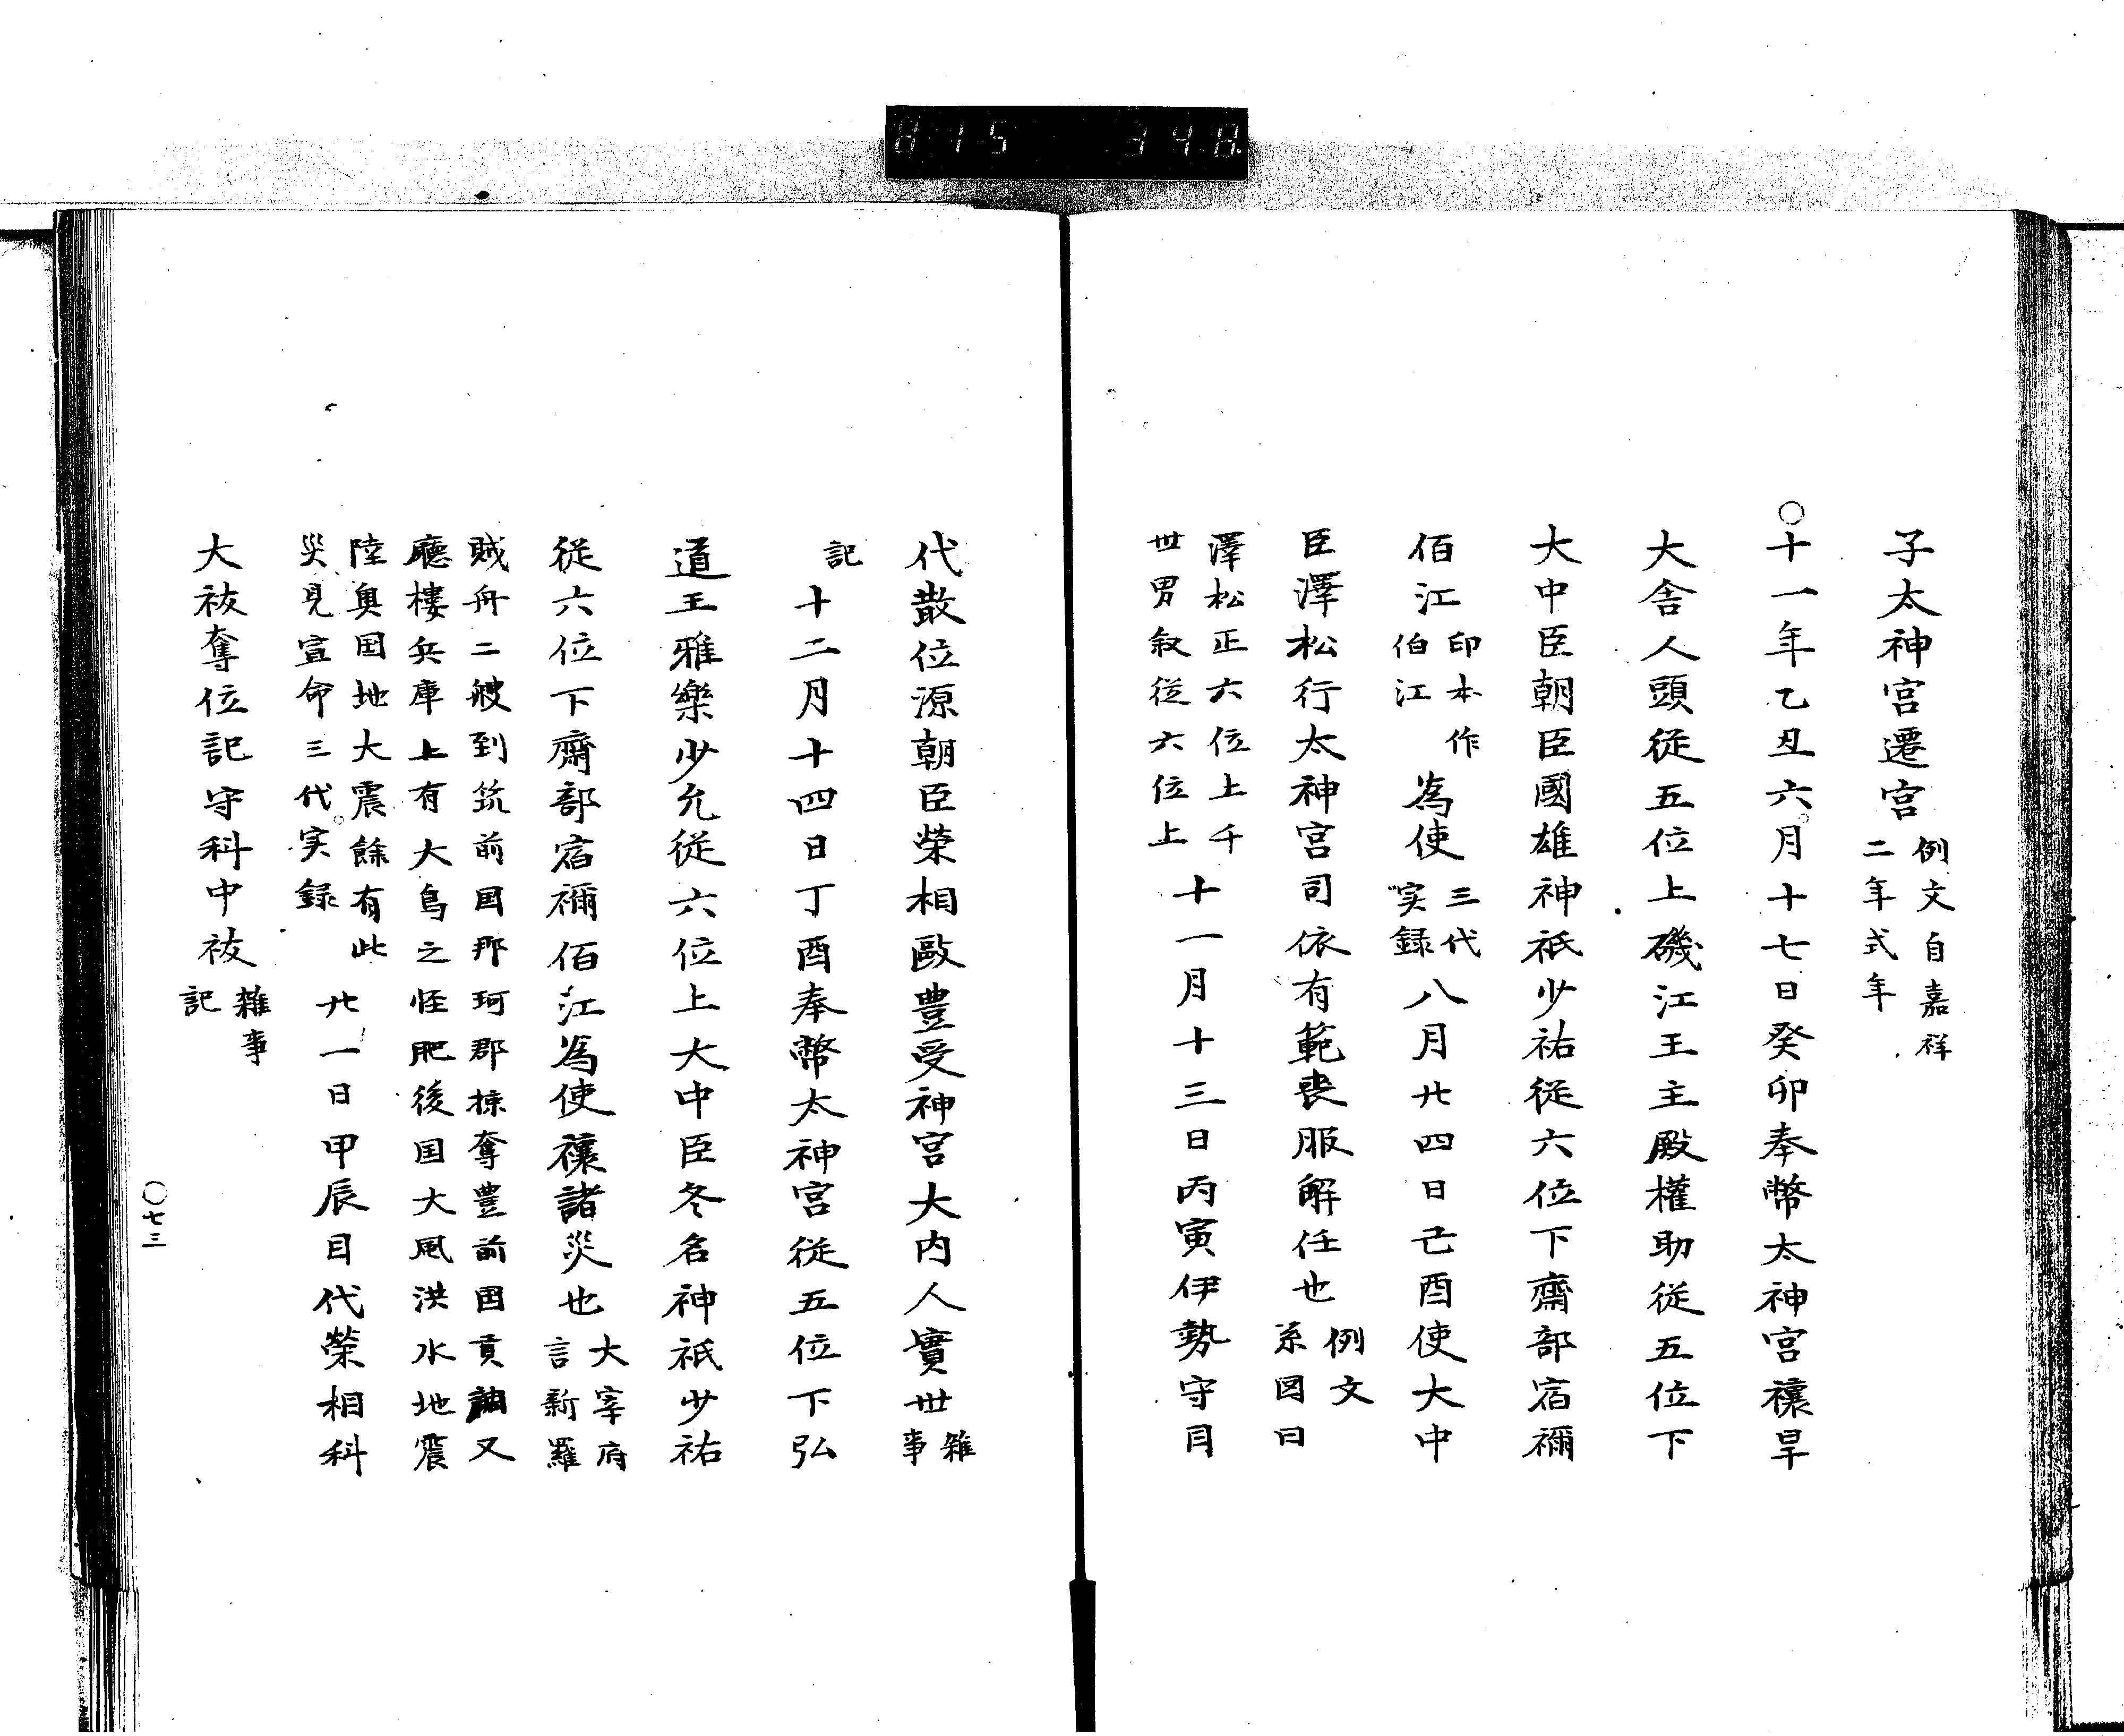 815 348
子太神宮遷宮例文自嘉祥
二年式年
〇十一年乙丑六月十七日癸卯奉幣太神宮禳旱
大舎人頭従五位上磯江王主殿權助従五位下
大中臣朝臣國雄神祇少祐従六位下齋部宿禰
佰江印本作
伯江為使三代
実録八月廿四日己酉使大中
臣澤松行太神宮司依有範喪服解任也例文
系図曰
澤松正六位上千
世男叙従六位上十一月十三日丙寅伊勢守目
代散位源朝臣榮相毆豊受神宮大内人實世雑
事
記十二月十四日丁酉奉幣太神宮従五位下弘
道王雅樂少允従六位上大中臣冬名神祇少祐
従六位下齋部宿禰佰江為使禳諸災也大宰府
言新羅
賊舟二艘到筑前国那珂郡掠奪豊前国貢調又
廳樓兵庫上有大鳥之恠肥後国大風洪水地震
陸奥国地大震餘有此
災見宣命三代実録廿一日甲辰目代榮相科
大祓奪位記守科中祓雑事
記
〇七三